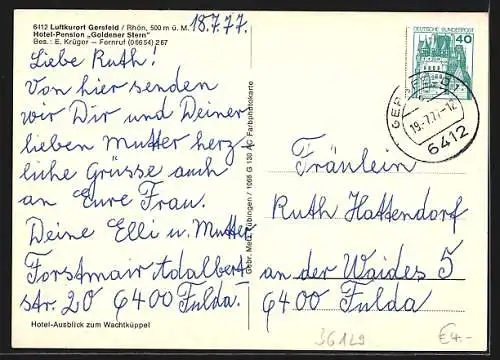 6412 Luftkurort Gersfeld / Rhön, 500 m ü. M.
Hotel-Pension „Goldener Stern"
Bes.: E. Krüger — Fernruf (06654) 267
18.7.77.
Liebe Ruth!
Von hier senden
wir Dir und Deiner
lieben Mutter herz
liche Grüsse auch
an Eure Frau.
Deine Elli u. Mutter
Forstmair Adalbert
str. 20 6400 Fulda.
Hotel-Ausblick zum Wachtküppel
Gebr. Metz Tübingen / 1066 G 130 AG Farbphotokarte
DEUTSCHE BUNDESPOST
40
19.-7.77-12
6412
Fräulein
Ruth Hattendorf
an der Waides 5
6400 Fulda
36129
€4.-